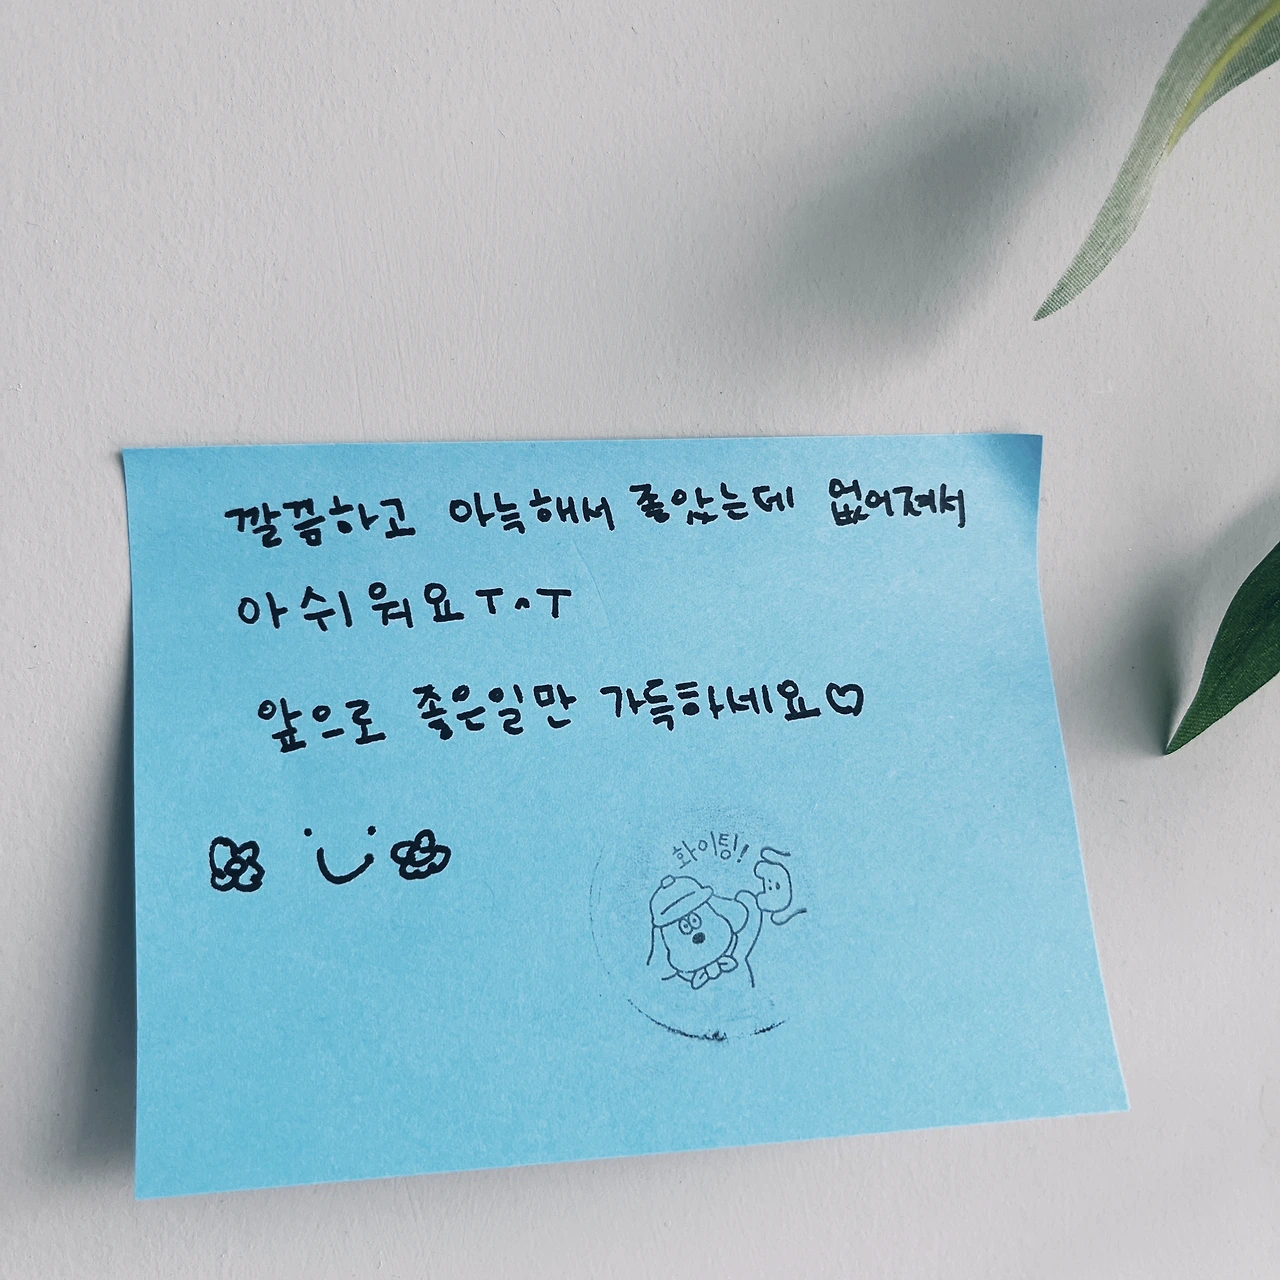 깔끔하고 아늑해서 좋았는데 없어져서
아쉬워요ㅜㅅㅜ
앞으로 좋은일만 가득하세요♡
화이팅!